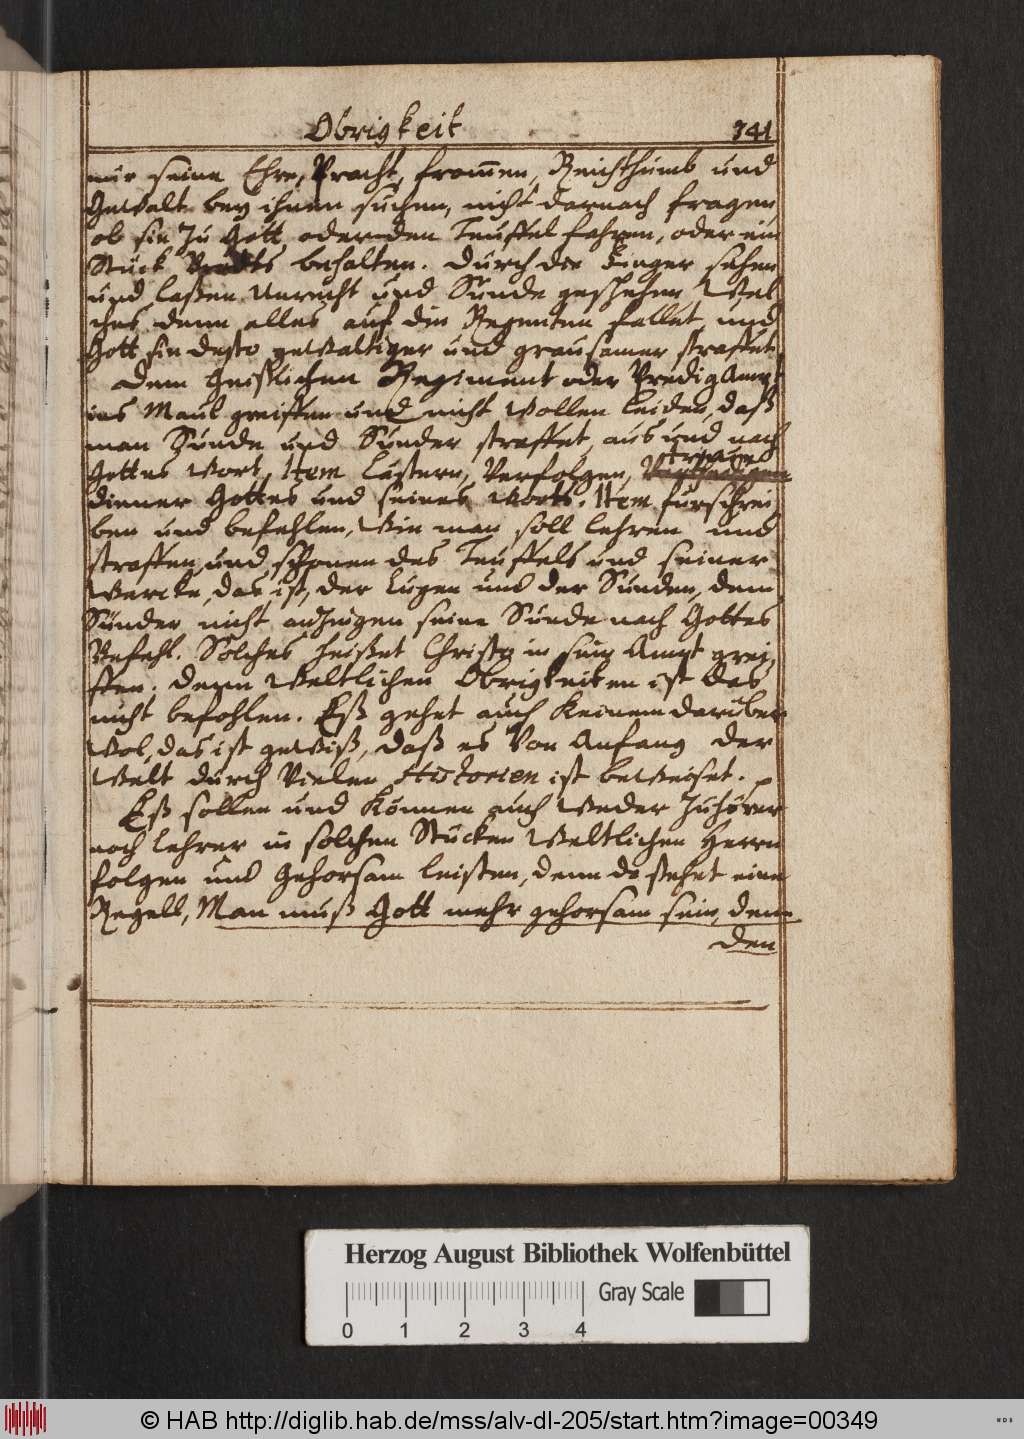 Obrigkeit 741
nur seine Ehre, Pracht, fromen, Reichthumb und
Gewalt bey ihnen suchen, nicht darnach fragen
ob sie zu Gott oder den Teuffel fahren, oder ein
Stück behalten. Durch die Finger sehen
und laßen Unrecht und Sünde geschehen Wel
ches denn alles auf die Regenten fallet und
Gott sie desto gewaltiger und grausamer straffet
Dem Geistlichen Regiment oder Predig Ampt
ins Maul greiffen und nicht wollen leiden, daß
man Sünde und Sünder straffet, aus und nach
Gottes Wort, Item lästern, Verfolgen,
diener Gottes und seines Worts. Item furschrei
ben und befehlen, Wie man soll lehren und
straffen, und schonen des Teuffels und seiner
Wercke, das ist, der Lügen und der Sünden, dem
Sünder nicht anzeigen seine Sünde nach Gottes
Befehl. Solches heißet Christo in sein Ampt grei,
ffen. Denn Weltlichen Obrigkeiten ist das
nicht befohlen. Eß gehet auch keinem darüber
Wol, das ist gewiß, daß es Von Anfang der
Welt durch Vielen Historien ist beweiset.
Eß sollen und können auch Weder Zuhörer
noch Lehrer in solchen Stücken Weltlichen Herrn
folgen und Gehorsam leisten, denn da stehet eine
Regell, Man muß Gott mehr gehorsam sein, denn
den
Herzog August Bibliothek Wolfenbüttel
Gray Scale
0 1 2 3 4
© HAB http://diglib.hab.de/mss/alv-dl-205/start.htm?image=00349